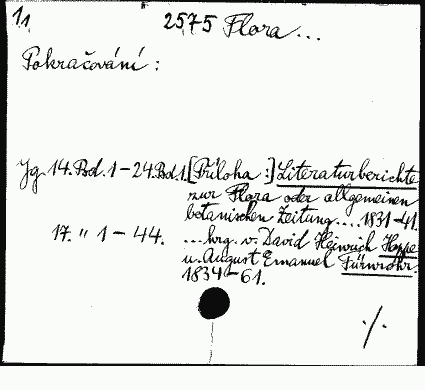 11.
2575 Flora...
Pokračování:
Jg. 14. Bd. 1 - 24. Bd. 1. [Příloha:] Literaturberichte
zur Flora oder allgemeinen
botanischen Zeitung.... 1831-41.
17. " 1 - 44. ...hrg. v. David Heinrich Hoppe
u. August Emanuel Fürnrohr.
1834-61.
./.